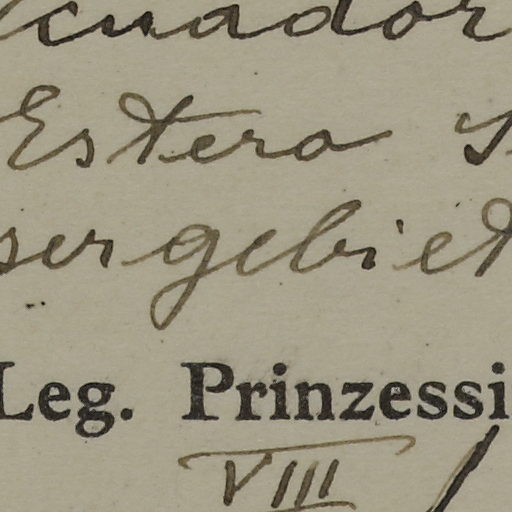 cuador
Estero S
sergebiet
Leg. Prinzessi
VIII